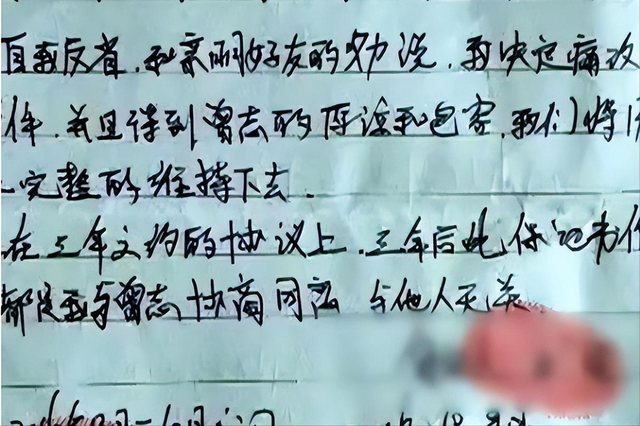 自我反省，和亲朋好友的劝说，我决定痛改
件，并且得到曾志的原谅和包容，我们将
完整的维持下去．
在三年文约的协议上．三年后此保证书作
都是我与曾志协商同意 与他人无关